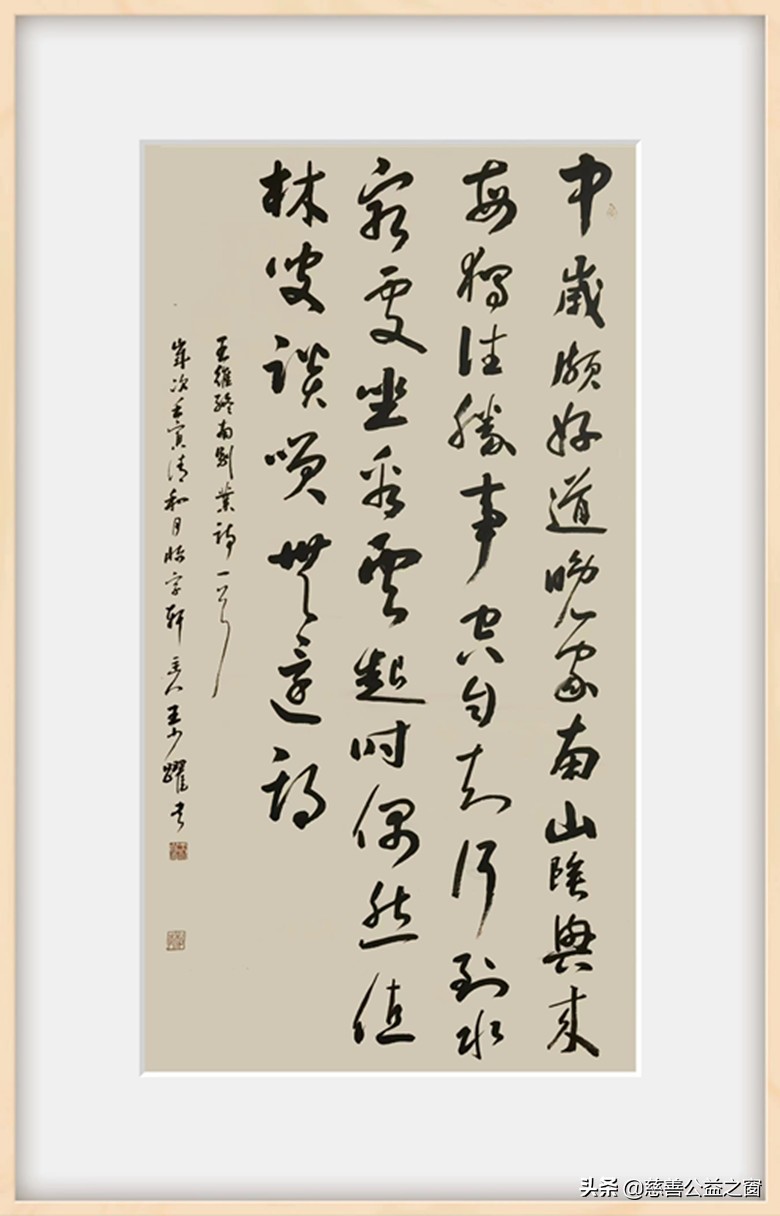 中歲頗好道晚家南山陲興來
每獨往勝事空自知行到水
窮處坐看雲起時偶然值
林叟談咲無還期
王維終南別業詩一首
歲次壬寅清和月字軒主人王少躍書
头条 @慈善公益之窗